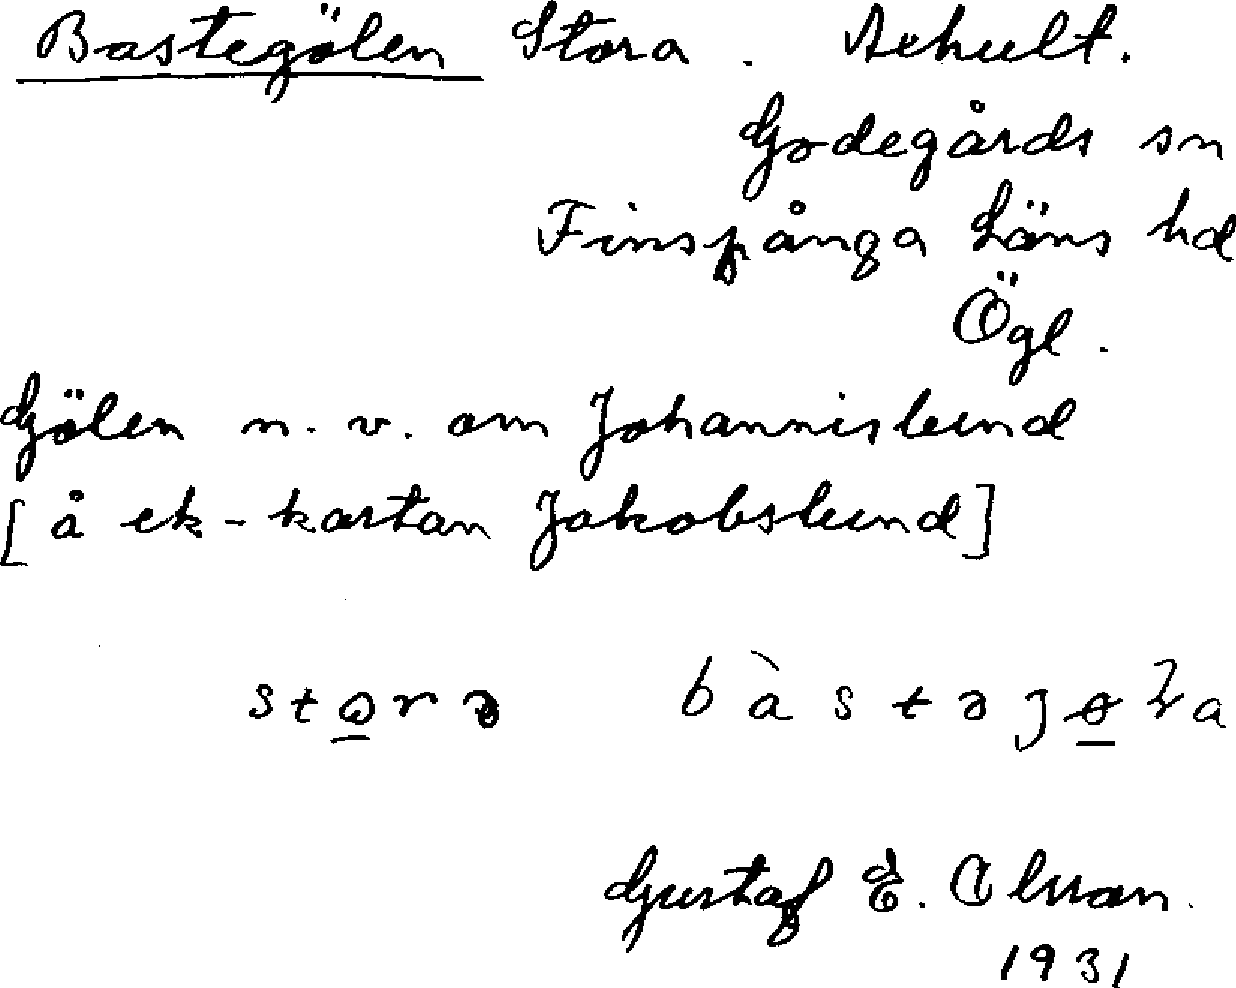 Bastegölen Stora. Aehult.
Godegårds sn
Finspånga Läns hd
Ögl.
Gölen n. v. om Johannislund
[å ek-kartan Jakobslund]
Gustaf E.
1931